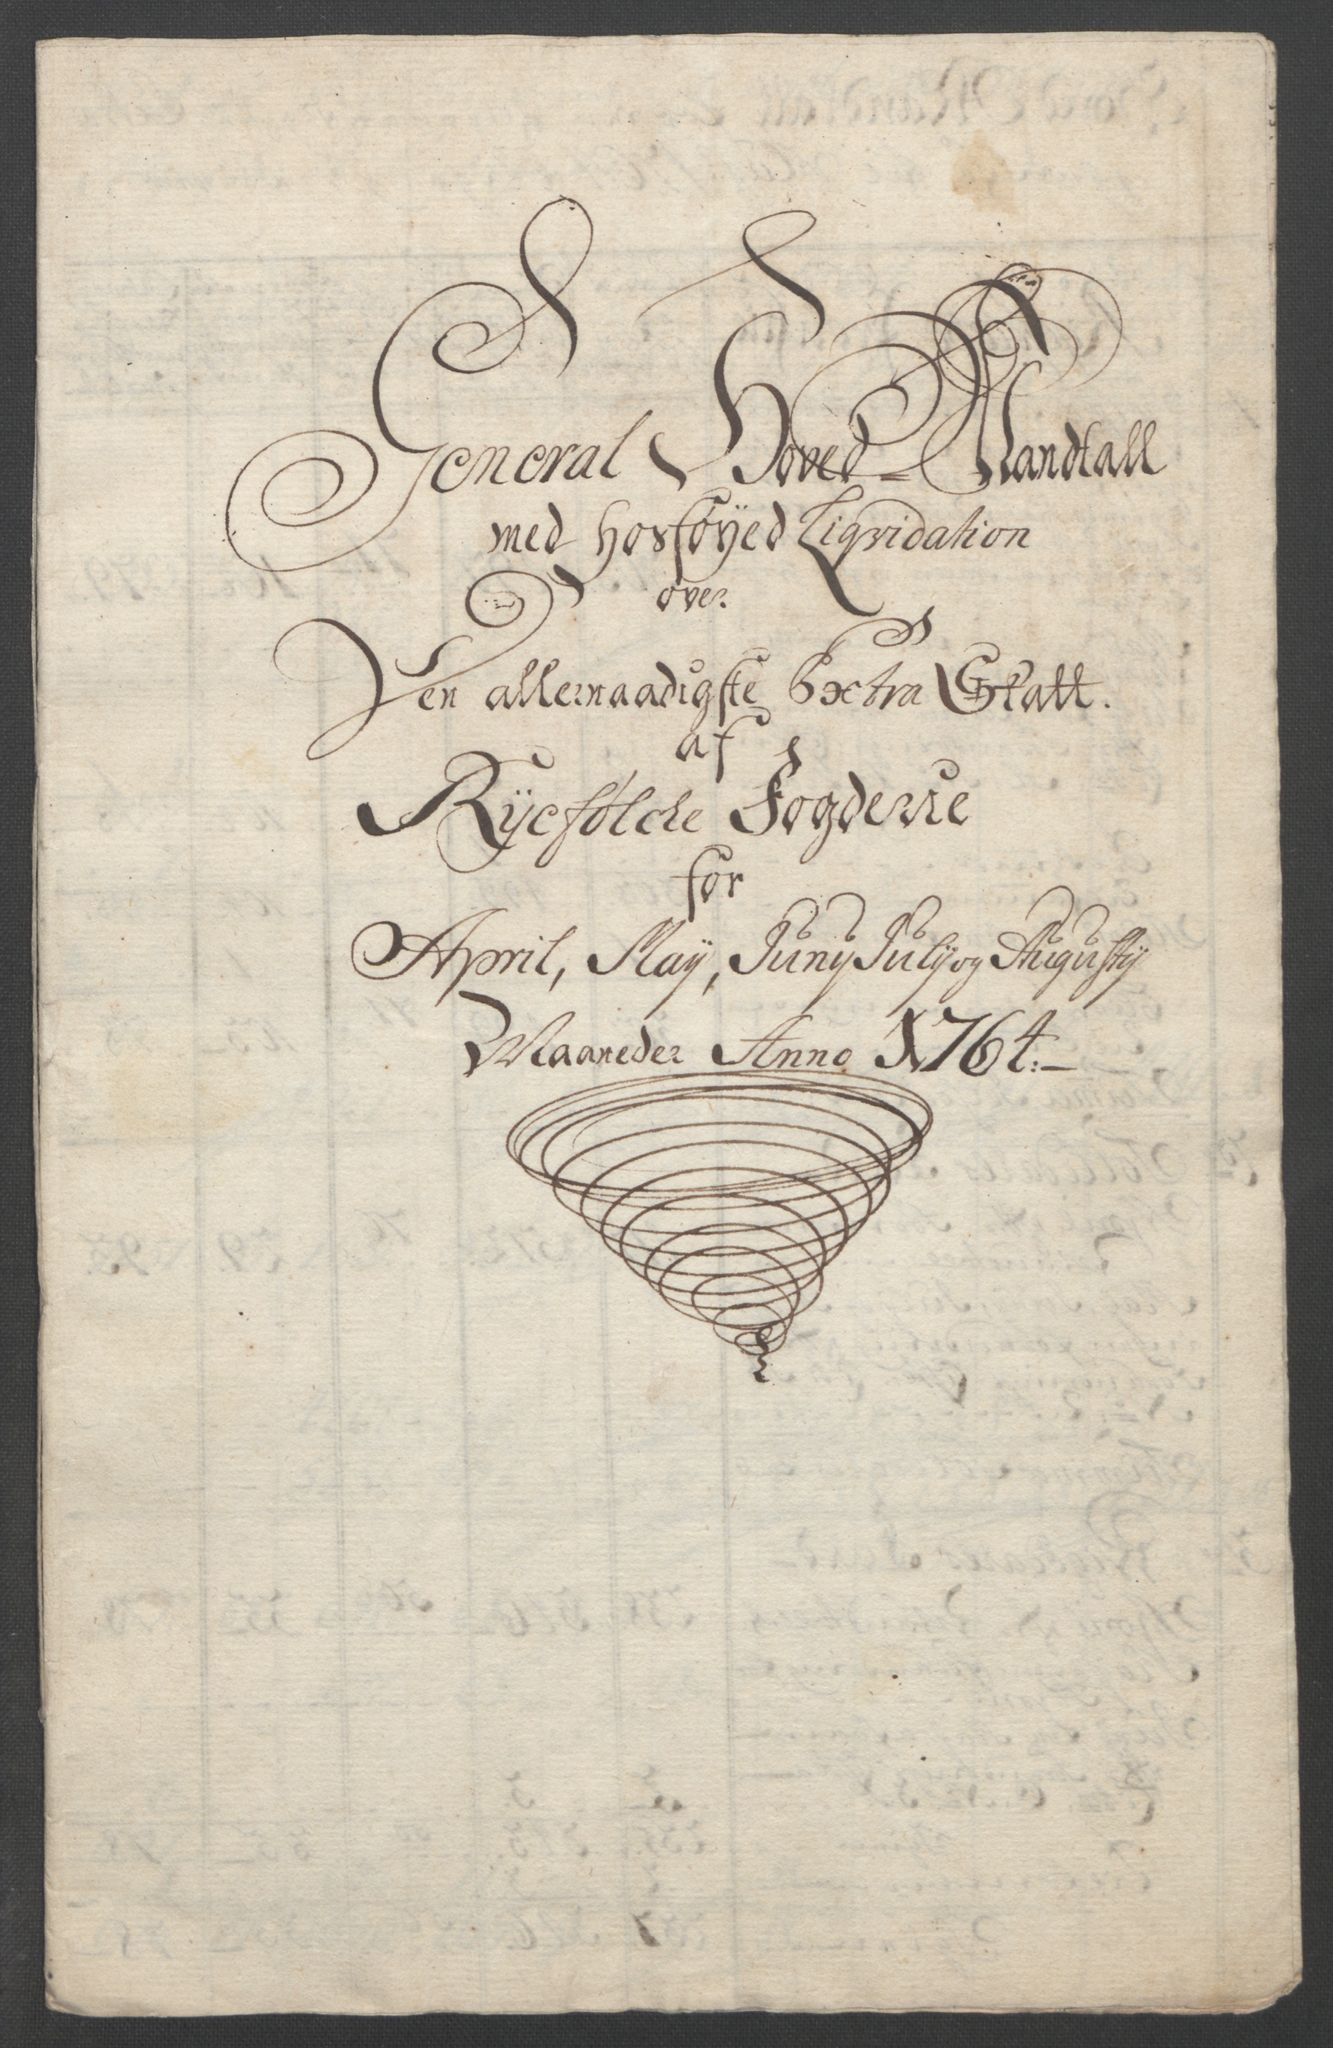 General Hoved-Mandtall
med hosføyed Liqvidation
over
Den allernaadigste Extra Skatt.
af
Rycfølcke Fogderie
for
April, May, Juny July og Augusty
Maaneder Anno 1764.